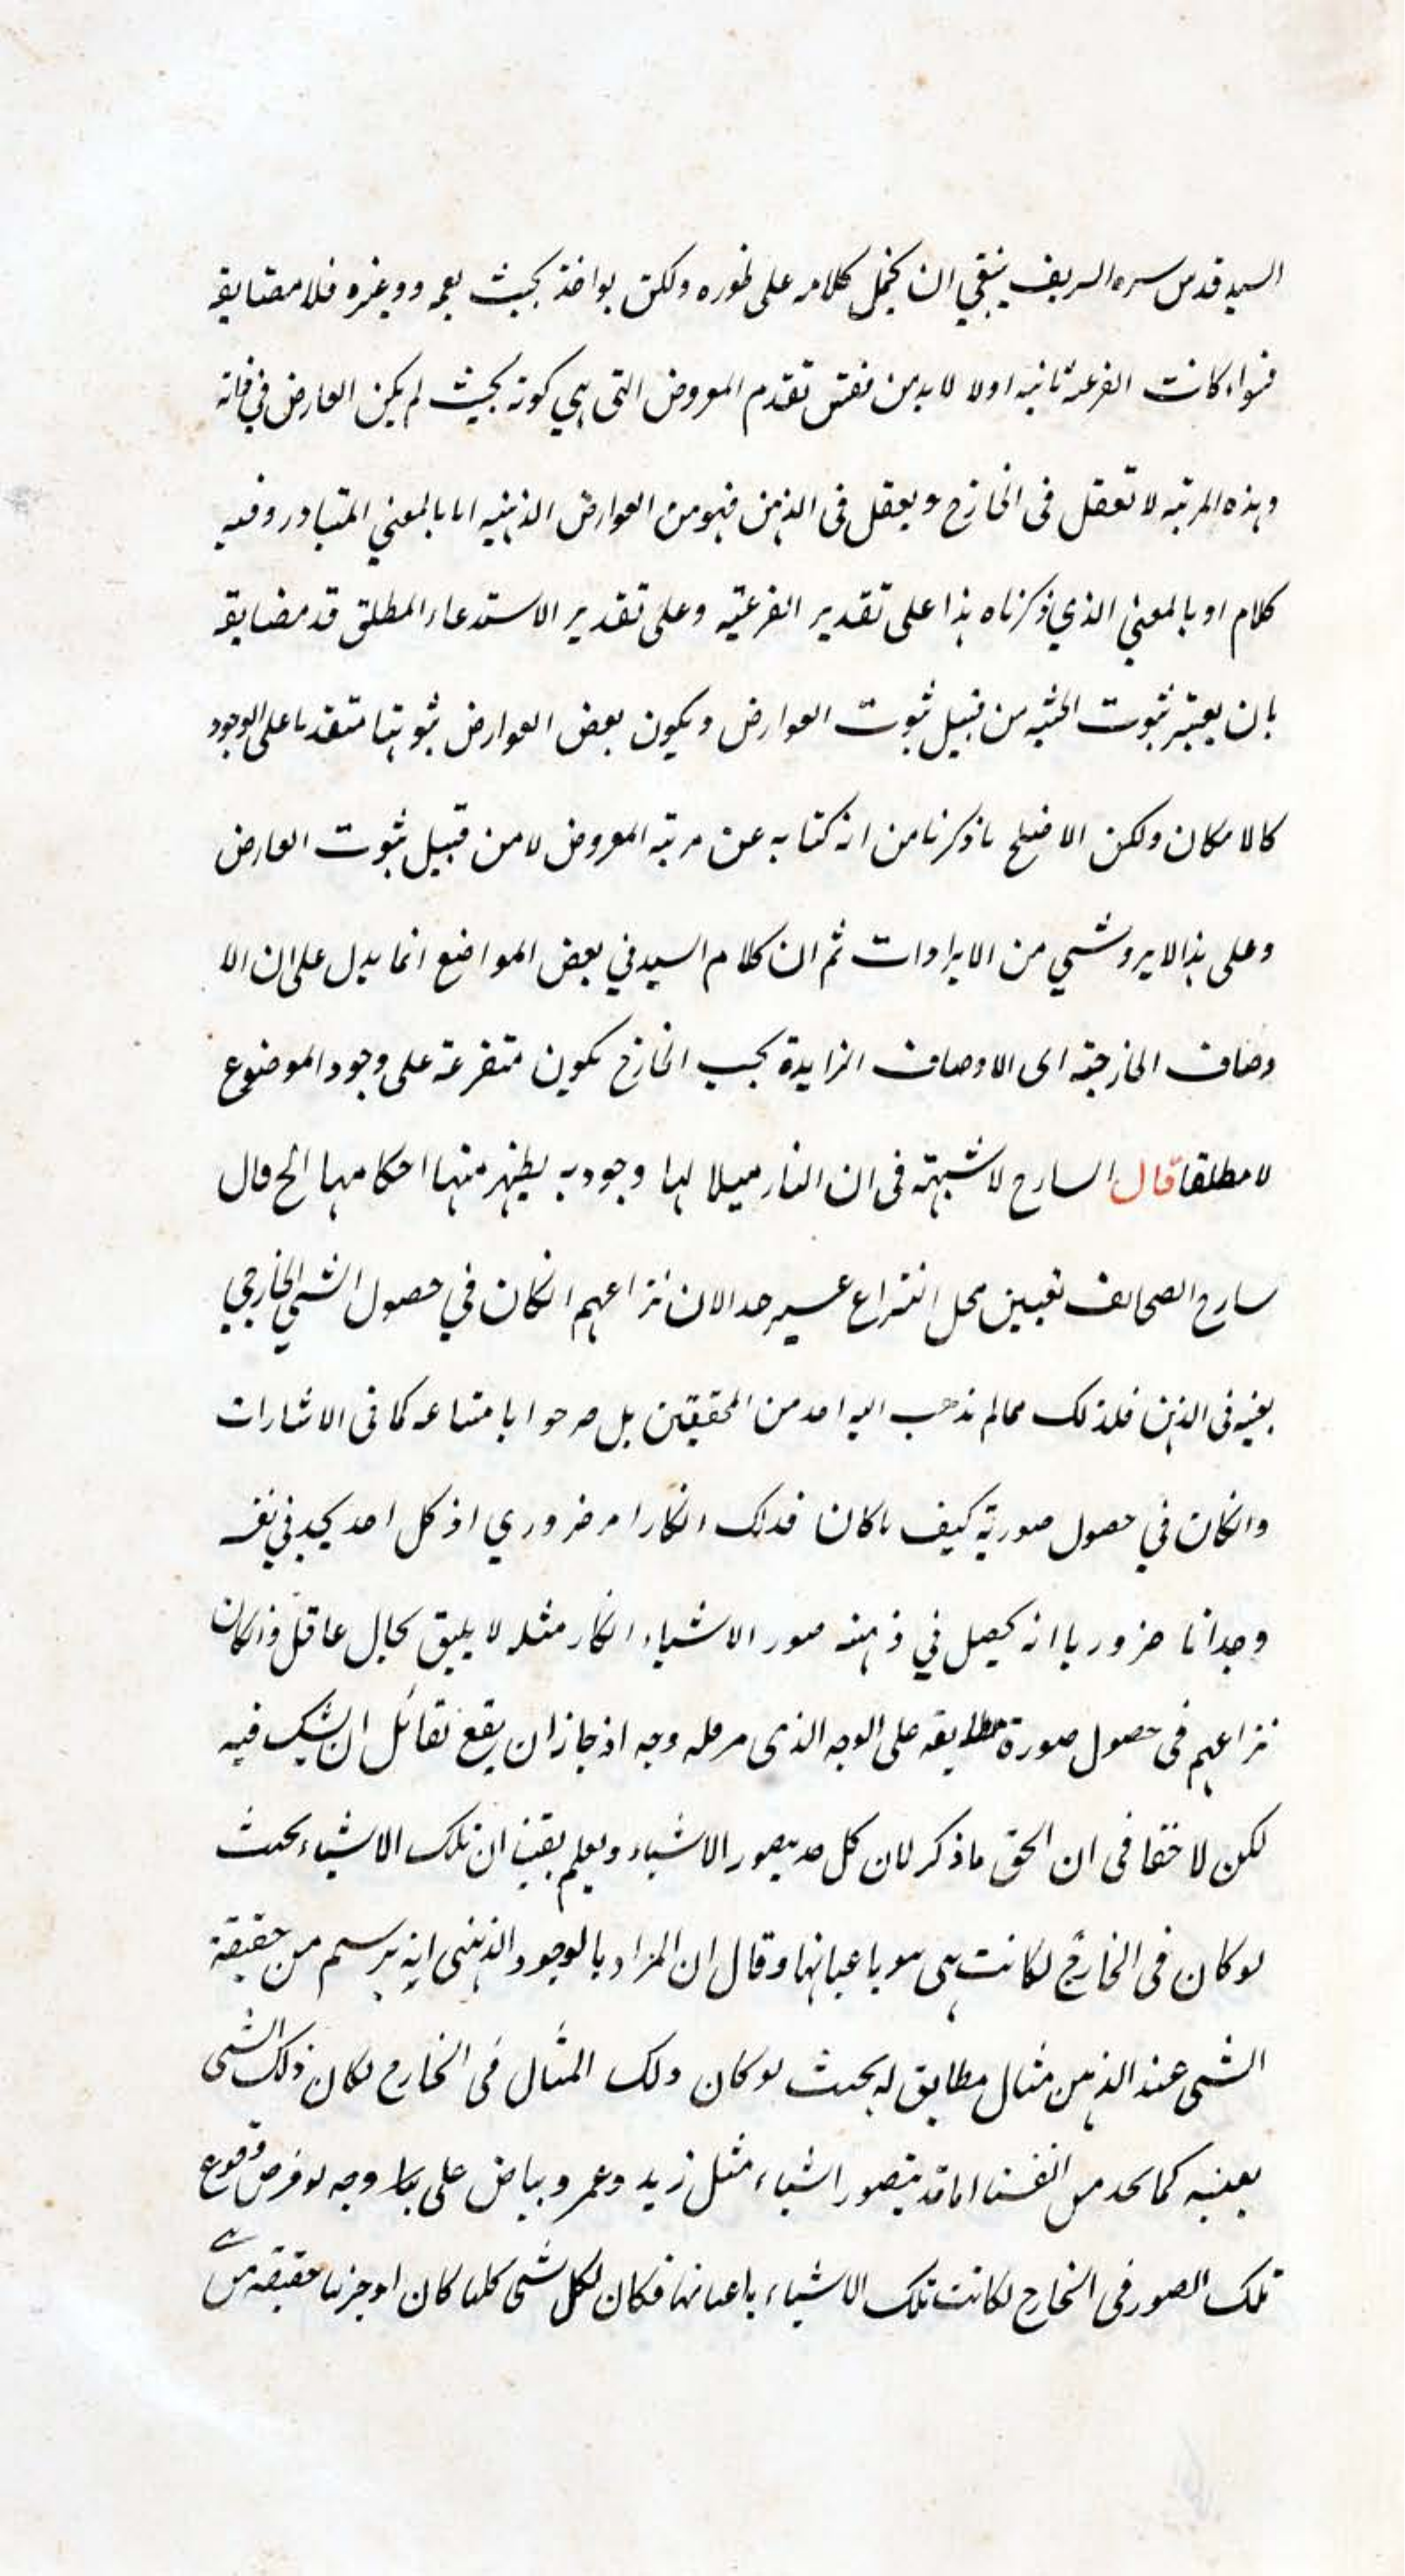 السيد قدس سره الشريف ينبغي ان يحمل كلامه على ظهوره ولكن يؤاخذ بحيث يعمه وغيره فلا مضايقه
فسواء كانت الفرعية ثانيه اولا لا بد من نفس تقدم المعروض التي هي كونه بحيث لم يكن العارض في
وهذه المرتبه لا تعقل في الخارج ويعقل في الذهن فهو من العوارض الذهنيه اما بالمعنى المتبادر وفيه
كلام او بالمعني الذي ذكرناه هذا على تقدير الفرعيته وعلى تقدير الاستدعاء المطلق قد مضايقه
بان يعتبر ثبوت الحيثيه من قبيل ثبوت العوارض ويكون بعض العوارض ثبوتها متقدما على الوجود
كالامكان ولكن الاصلح ما ذكرنا من انه كنايه عن مرتبه المعروض لا من قبيل ثبوت العارض
وعلى هذا لا يرد شي من الايرادات ثم ان كلام السيد في بعض المواضع انما يدل على ان الا
وصاف الخارجيه اى الاوصاف الزايدة بحسب الخارج يكون متفرعة على وجود الموضوع
لا مطلقا قال الشارح لا شبهة في ان النار ميلا لها وجود به يظهر منها احكامها الخ قال
سارح الصحائف تعيين محل النزاع عسير جدا لان نزاعهم انكان في حصول الشي الخارجي
بعينه في الذهن فلذلك مما لم يذهب اليه احد من المحققين بل صرحوا بامتناعه كما في الاشارات
وانكان في حصول صورته كيف ما كان فذلك انكار امر ضروري اذ كل احد يجد في نفسه
وجدانا ضروريا انه يحصل في ذهنه صور الاشياء انكار مثله لا يليق بحال عاقل وانكان
نزاعهم في حصول صورة مطابقه على الوجه الذى مر فله وجه اذ جاز ان يقع لقائل ان يشك فيه
لكن لا خفا في ان الحق ما ذكر لان كل احد يتصور الاشياء ويعلم يقينا ان تلك الاشياء بحيث
لو كان في الخارج لكانت هي هو باعيانها وقال ان المراد بالوجود الذهنى انه يرسم من حقيقة
الشى عند الذهن مثال مطابق له بحيث لو كان ذلك المثال في الخارج لكان ذلك الشى
بعينه كما نجد من انفسنا انا قد يتصور اشياء مثل زيد وعمر وبياض على وجه لو فرض وقوع
تلك الصور في الخارج لكانت تلك الاشياء باعيانها فكان لكل شى كليا كان او جزئيا حقيقه من